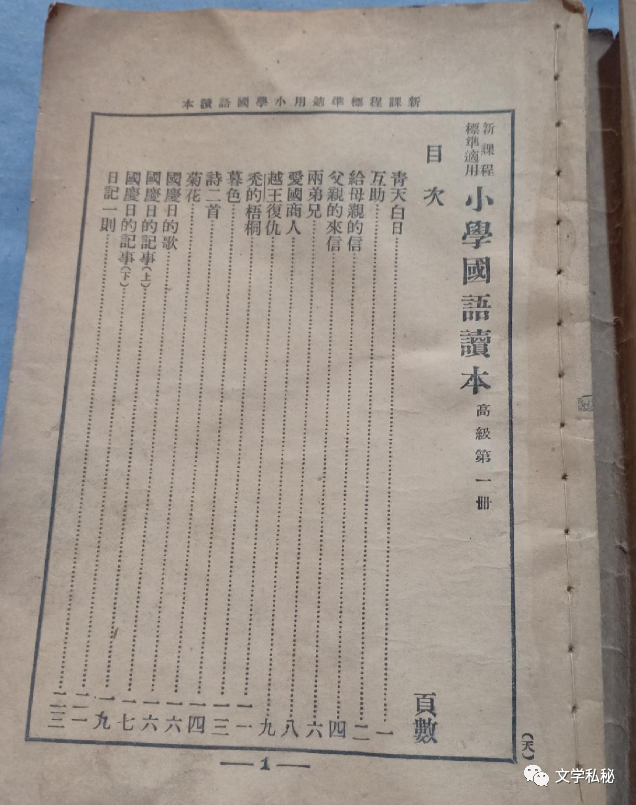 新課程標準適用小學國語讀本
新課程
標準適用
小學國語讀本 高級第一冊
目次 頁數
青天白日 一
互助 二
給母親的信 四
父親的來信 六
兩弟兄 八
愛國商人 九
越王復仇 一一
禿的梧桐 一三
暮色 一四
詩二首 一六
菊花 一六
國慶日的歌 一七
國慶日的記事(上) 一九
國慶日的記事(下) 二一
日記一則 二三
1
(天)
文学私秘